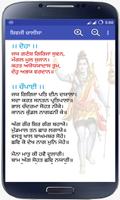 ਸ਼ਿਵਜੀ ਚਾਲੀਸਾ
॥ ਦੋਹਾ ॥
ਜਯ ਗਿਰਿਜਾ ਸੁਵਨ,
ਮੰਗਲ ਮੂਲ ਸੁਜਾਨ।
ਕਹਤ ਅਯੋਧਯਾਦਾਸ ਤੁਮ,
ਦੇਹੁ ਅਭਯ ਵਰਦਾਨ॥
॥ ਚੌਪਾਈ ॥
ਜਯ ਗਿਰਿਜਾ ਪਤਿ ਦੀਨ ਦਯਾਲਾ।
ਸਦਾ ਕਰਤ ਸੰਤਨ ਪ੍ਰਤਿਪਾਲਾ॥
ਭਾਲ ਚੰਦ੍ਰਮਾ ਸੋਹਤ ਨੀਕੇ।
ਕਾਨਨ ਕੁੰਡਲ ਨਾਗਫਨੀ ਕੇ॥
ਅੰਗ ਗੌਰ ਸ਼ਿਰ ਗੰਗ ਬਹਾਯੇ।
ਮੁੰਡਮਾਲ ਤਨ ਛਾਰ ਲਗਾਯੇ॥
ਵਸਤ੍ਰ ਖਾਲ ਬਾਘੰਬਰ ਸੋਹੇ।
ਛਵਿ ਕੋ ਦੇਖ ਨਾਗ ਮੁਨਿ ਮੋਹੇ॥